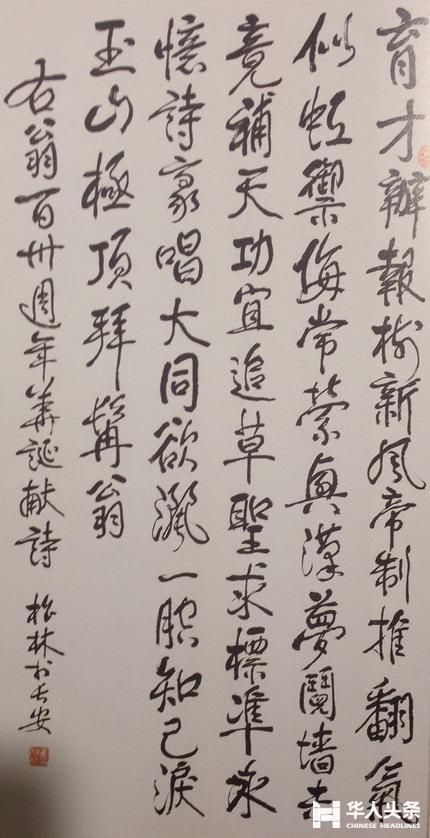 育才辦報樹新風帝制推翻氣
似虹禦侮常縈興漢夢鬩墻未
竟補天功宜追草聖求標準永
憶詩豪唱大同欲灑一腔知己淚
玉山極頂拜髯翁
右翁百卅週年華誕献詩
松林长安
华人头条
CHINESE HEADLINES